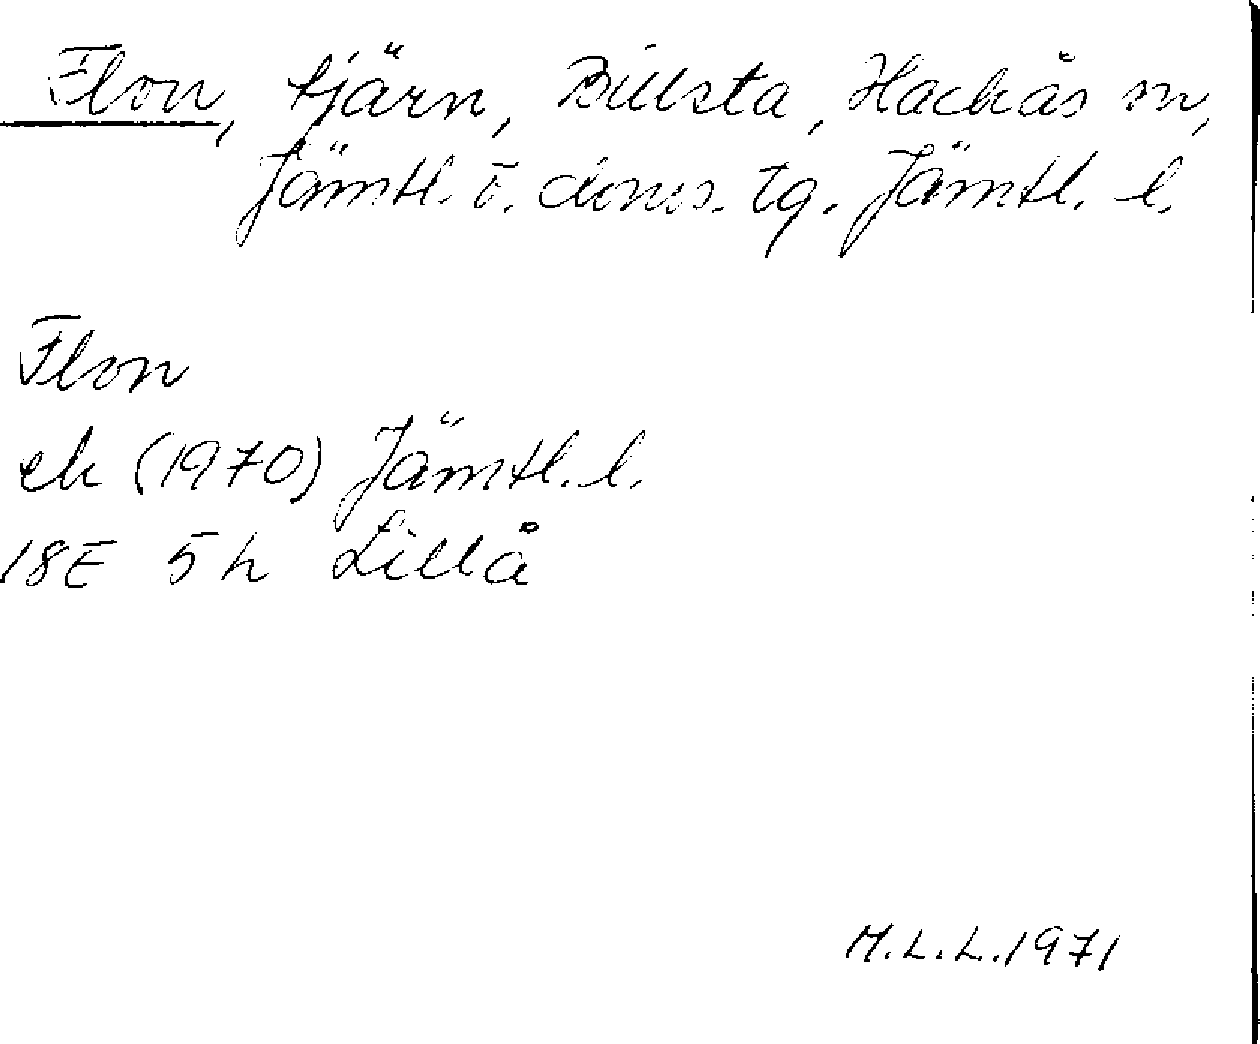 Flon, tjärn, Billsta, Hackås sn,
Jämtl. ö. doms. tg. Jämtl. l.
Flon
ek (1970) Jämtl. l.
18E 5h Lillå
M.L.L. 1971